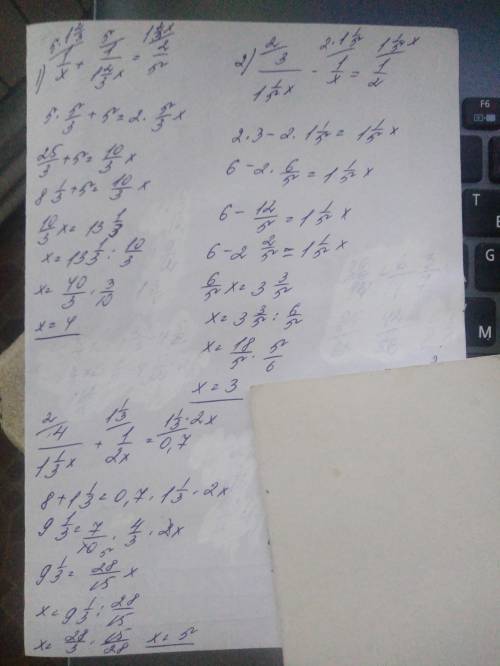 1) 5·1 2/3 / 1/x + 5/ 1/(1 2/3 x) = 1 2/3 x/ 2/5
5 · 5/3 + 5 = 2 · 5/3 x
25/3 + 5 = 10/3 x
8 1/3 + 5 = 10/3 x
10/3 x = 13 1/3
x = 13 1/3 : 10/3
x = 40/3 · 3/10
x = 4
2) 2/ 3/(1 1/5 x) - 2·1 1/5 / 1/x = 1 1/5 x/ 1/2
2 · 3 - 2 · 1 1/5 = 1 1/5 x
6 - 2 · 6/5 = 1 1/5 x
6 - 12/5 = 1 1/5 x
6 - 2 2/5 = 1 1/5 x
6/5 x = 3 3/5
x = 3 3/5 : 6/5
x = 18/5 · 5/6
x = 3
2/ 4/(1 1/3 x) + 1 1/3 / 1/(2x) = 1 1/3 · 2x/ 0,7
8 + 1 1/3 = 0,7 · 1 1/3 · 2x
9 1/3 = 7/10 · 4/3 · 2x
5
9 1/3 = 28/15 x
x = 9 1/3 : 28/15
x = 28/3 · 15/28 x = 5
F6
T